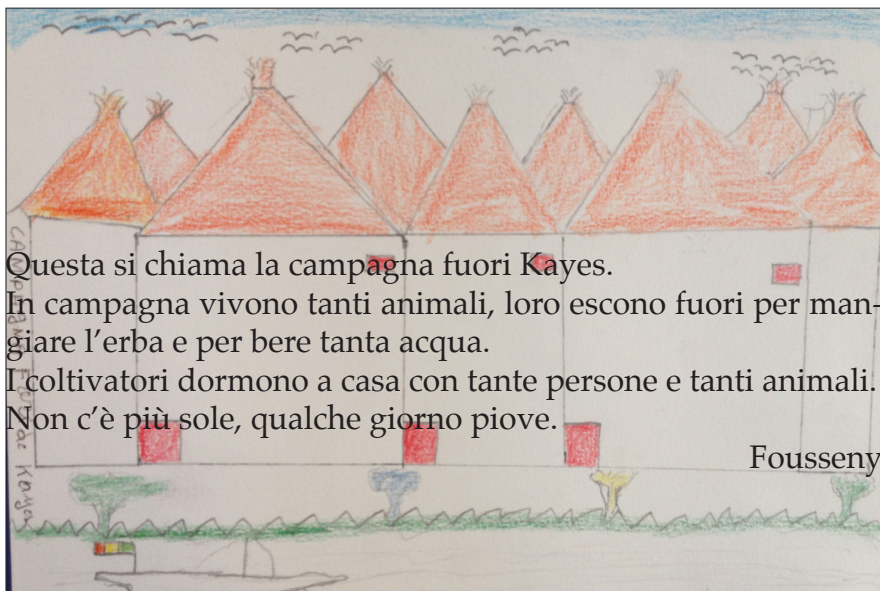 Questa si chiama la campagna fuori Kayes.
In campagna vivono tanti animali, loro escono fuori per man-
giare l’erba e per bere tanta acqua.
I coltivatori dormono a casa con tante persone e tanti animali.
Non c’è più sole, qualche giorno piove.
Fousseny
CAMPAGNA